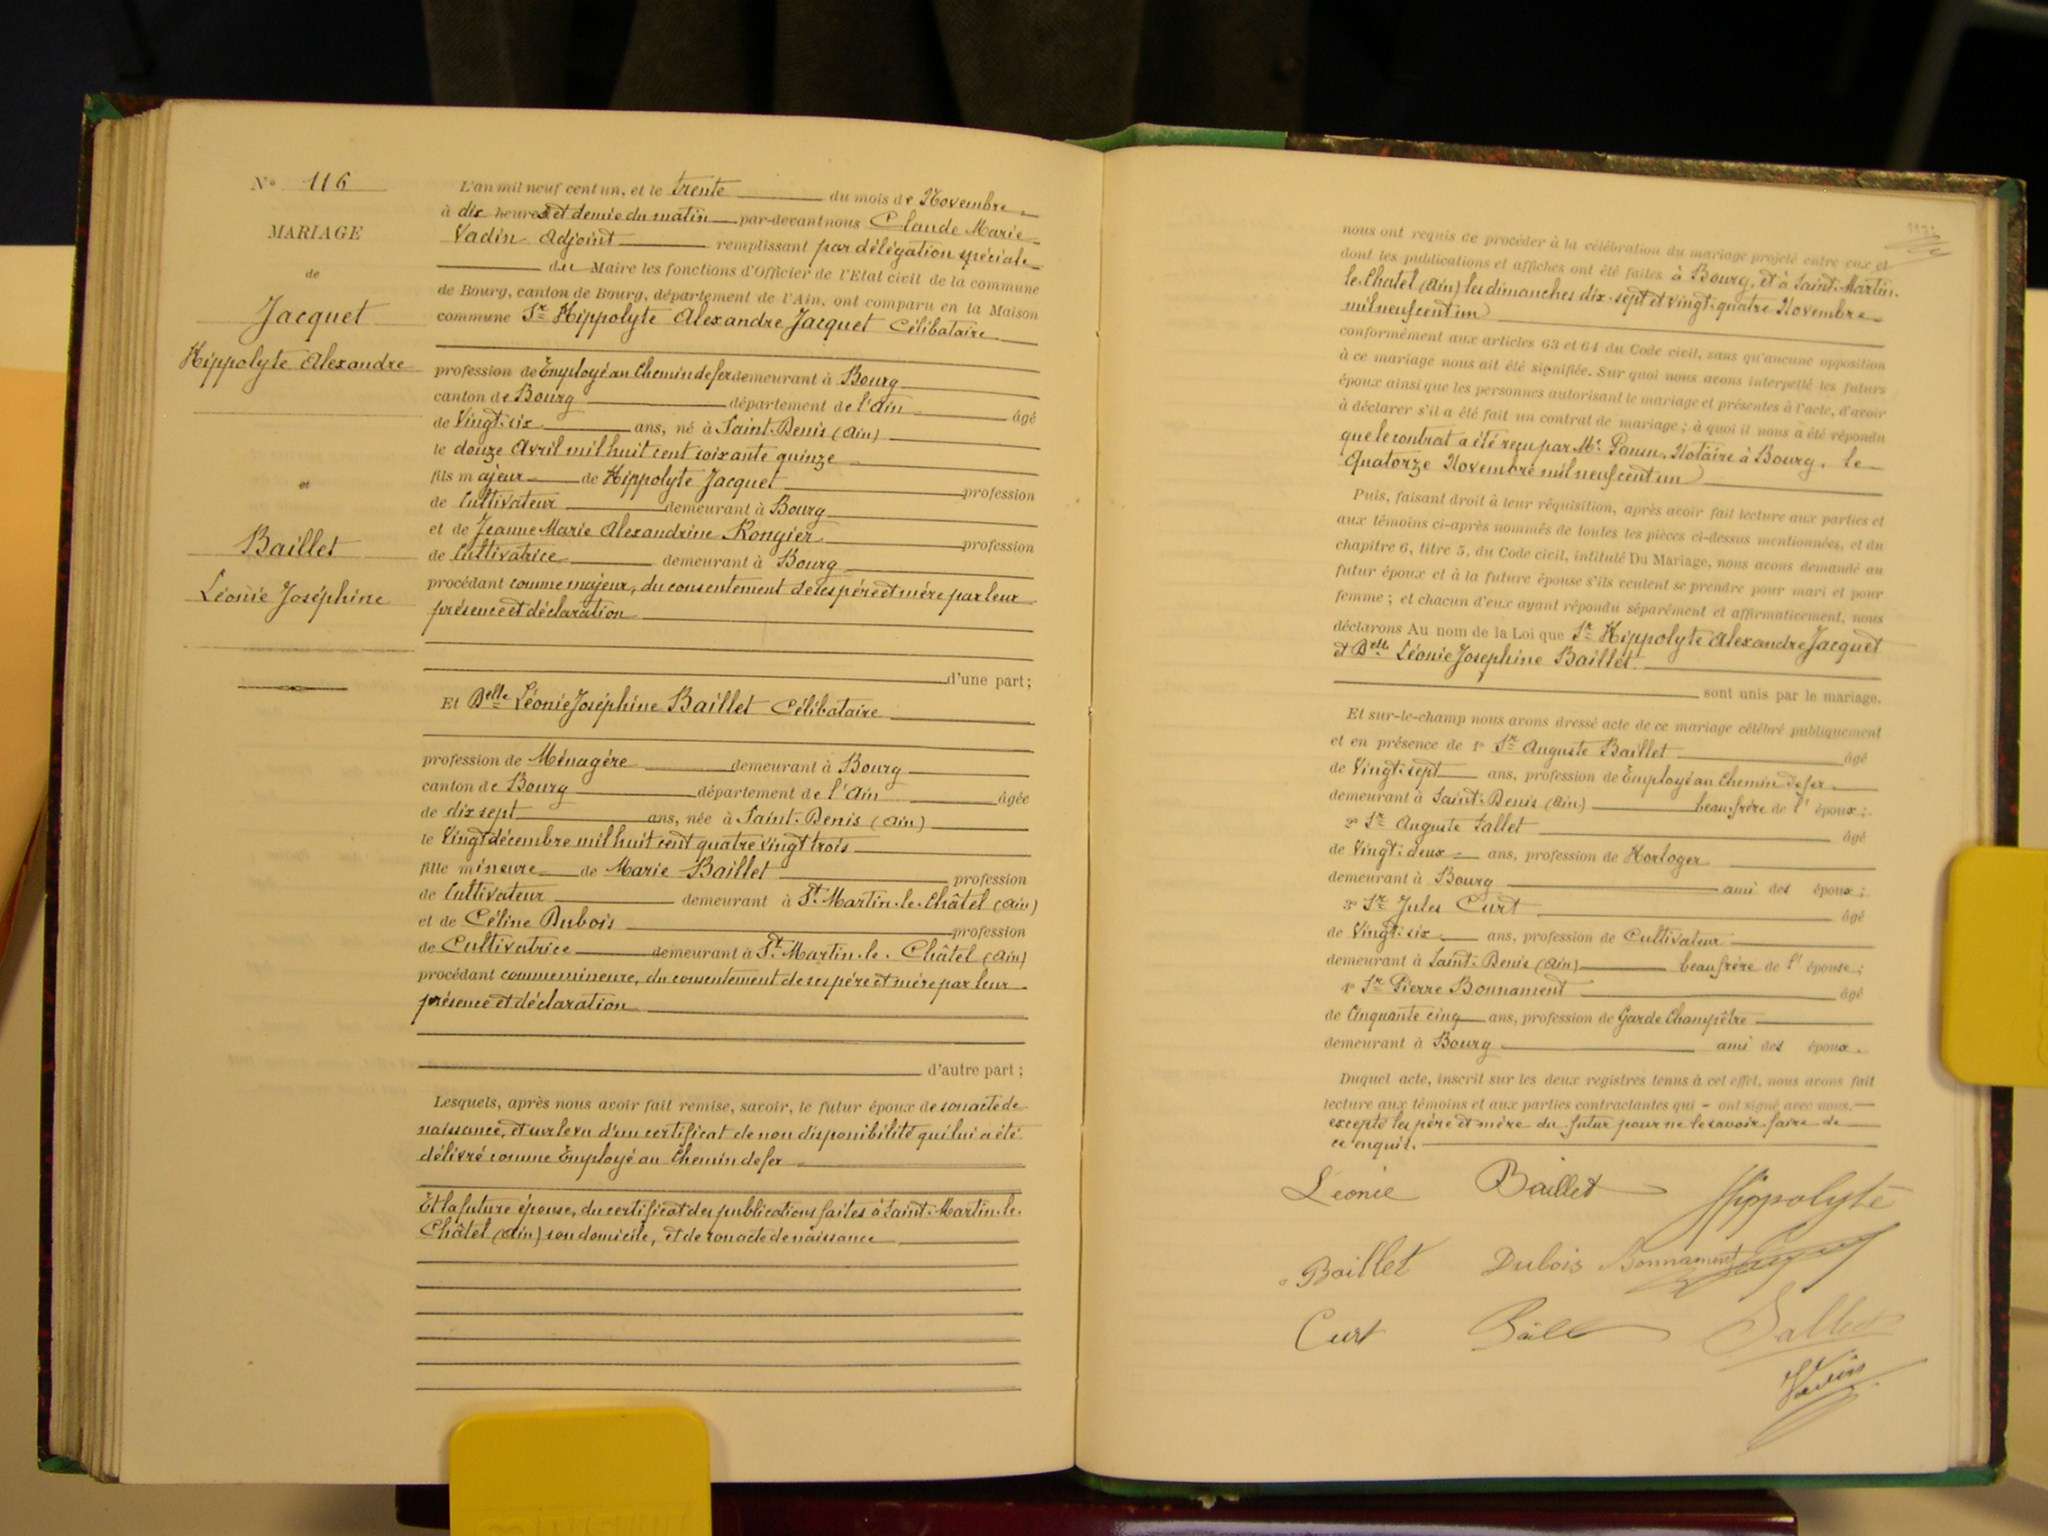 N° 116
MARIAGE
de
Jacquet
Hippolyte Alexandre
et
Baillet
Léonie Joséphine
L'an mil neuf cent un, et le trente du mois de Novembre
à dix heures et demie du matin par-devant nous Claude Marie
Vadin Adjoint remplissant par délégation spéciale
du Maire les fonctions d'Officier de l'Etat civil de la commune
de Bourg, canton de Bourg, département de l'Ain, ont comparu en la Maison
commune Sr Hippolyte Alexandre Jacquet Célibataire
profession de Employé au Chemin de fer demeurant à Bourg
canton de Bourg département de l'Ain âgé
de Vingt-six ans, né à Saint-Denis (Ain)
le douze Avril mil huit cent soixante quinze
fils majeur de Hippolyte Jacquet profession
de Cultivateur demeurant à Bourg
et de Jeanne Marie Alexandrine Rongier profession
de Cultivatrice demeurant à Bourg
procédant comme majeur, du consentement de ses père et mère par leur
présence et déclaration
d'une part;
Et Delle Léonie Joséphine Baillet Célibataire
profession de Ménagère demeurant à Bourg
canton de Bourg département de l'Ain âgée
de dix sept ans, née à Saint-Denis (Ain)
le Vingt décembre mil huit cent quatre vingt trois
fille mineure de Marie Baillet profession
de Cultivateur demeurant à St Martin-le-Châtel (Ain)
et de Céline Dubois profession
de Cultivatrice demeurant à St Martin-le-Châtel (Ain)
procédant comme mineure, du consentement de ses père et mère par leur
présence et déclaration
d'autre part;
Lesquels, après nous avoir fait remise, savoir, le futur époux de son acte de
naissance, et sur le vu d'un certificat de non disponibilité qui lui a été
délivré comme Employé au Chemin de fer
Et la future épouse, du certificat des publications faites à Saint-Martin-le-
Châtel (Ain) son domicile, et de son acte de naissance
nous ont requis de procéder à la célébration du mariage projeté entre eux et
dont les publications et affiches ont été faites à Bourg, et à Saint-Martin-
le-Châtel (Ain) les dimanches dix-sept et vingt-quatre Novembre
mil neuf cent un
conformément aux articles 63 et 64 du Code civil, sans qu'aucune opposition
à ce mariage nous ait été signifiée. Sur quoi nous avons interpellé les futurs
époux ainsi que les personnes autorisant le mariage et présentes à l'acte, d'avoir
à déclarer s'il a été fait un contrat de mariage; à quoi il nous a été répondu
que le contrat a été reçu par Me Notaire à Bourg, le
Quatorze Novembre mil neuf cent un
Puis, faisant droit à leur réquisition, après avoir fait lecture aux parties et
aux témoins ci-après nommés de toutes les pièces ci-dessus mentionnées, et du
chapitre 6, titre 5, du Code civil, intitulé Du Mariage, nous avons demandé au
futur époux et à la future épouse s'ils veulent se prendre pour mari et pour
femme; et chacun d'eux ayant répondu séparément et affirmativement, nous
déclarons Au nom de la Loi que Sr Hippolyte Alexandre Jacquet
et Delle Léonie Josephine Baillet
sont unis par le mariage.
Et sur-le-champ nous avons dressé acte de ce mariage célébré publiquement
et en présence de 1° Sr Auguste Baillet âgé
de Vingt-sept ans, profession de Employé au Chemin de fer
demeurant à Saint-Denis (Ain) beau-frère de l'époux;
2° Sr Auguste Sallet âgé
de Vingt-deux ans, profession de Horloger
demeurant à Bourg ami des époux;
3° Sr Jules Curt âgé
de Vingt-six ans, profession de Cultivateur
demeurant à Saint-Denis (Ain) beau frère de l'épouse;
4° Sr Pierre Bonnament âgé
de Cinquante cinq ans, profession de Garde Champêtre
demeurant à Bourg ami des époux.
Duquel acte, inscrit sur les deux registres tenus à cet effet, nous avons fait
lecture aux témoins et aux parties contractantes qui - ont signé avec nous,
excepté les père et mère du futur pour ne le savoir faire de
ce enquis.
Léonie Baillet Hippolyte
Baillet Dubois Bonnament Jacquet
Curt Baill Sallet
Vadin